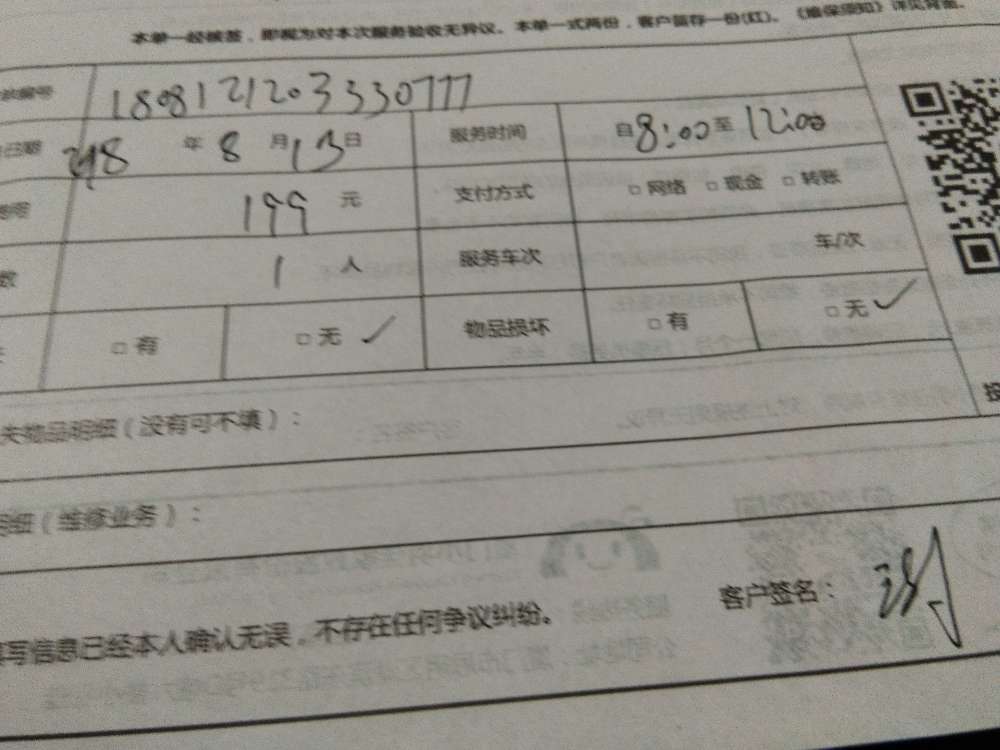 本单一经核签，即视为对本次服务验收无异议。本单一式两份，客户留存一份(红)。《维保须知》详见背面。
编号 1808121203330777
日期 2018 年 8 月 13 日 服务时间 自 8:00 至 12:00
199 元 支付方式 □ 网络 □ 现金 □ 转账
数 1 人 服务车次 车/次
□ 有 □ 无 ✓ 物品损坏 □ 有 □ 无 ✓
失物品明细（没有可不填）：
明细（维修业务）：
填写信息已经本人确认无误，不存在任何争议纠纷。 客户签名：